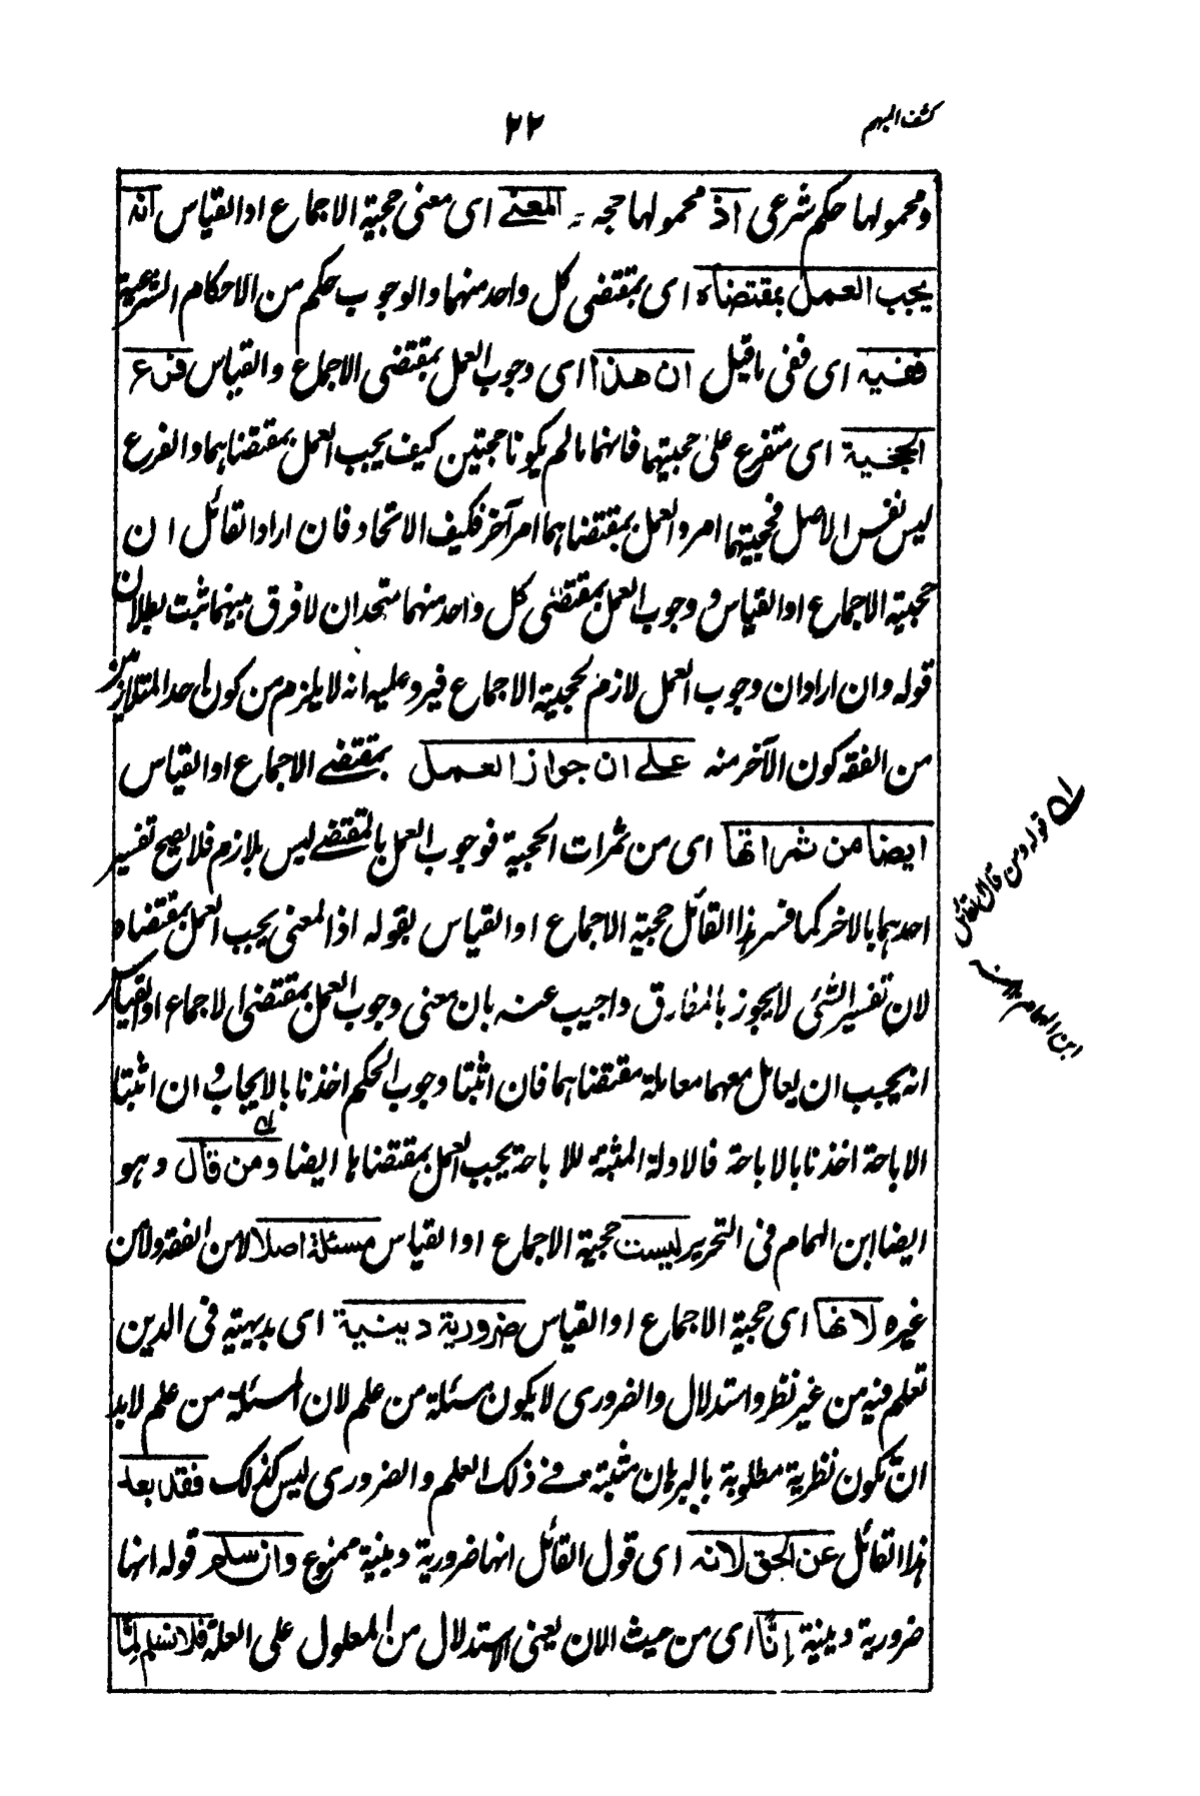 كشف المبهم
٢٢
ومحمولها حكم شرعى اذ محمولها حجه المعنى اى معنى حجية الاجماع او القياس انه
يجب العمل بمقتضاه اى بمقتضى كل واحد منهما والوجوب حكم من الاحكام الشرعية
ففيه اى ففى ما قيل ان هذا اى وجوب العمل بمقتضى الاجماع والقياس فرع
الحجية اى متفرع على حجيتهما فانهما مالم يكونا حجتين كيف يجب العمل بمقتضاهما والفرع
ليس نفس الاصل فحجيتهما امر والعمل بمقتضاهما امر آخر فكيف الاتحاد فان اراد القائل ان
حجية الاجماع او القياس و وجوب العمل بمقتضى كل واحد منهما متحدان لا فرق بينهما ثبت بطلان
قوله وان اراد ان وجوب العمل لازم لحجية الاجماع فيرد عليه انه لا يلزم من كون احد المتلازمين
من الفقه كون الآخر منه على ان جواز العمل بمقتضى الاجماع او القياس
ايضا من ثمراتها اى من ثمرات الحجية فوجوب العمل بالمقتضى ليس بلازم فلا يصح تفسير
احدهما بالاخر كما فسر هذا القائل حجية الاجماع او القياس بقوله اذ المعنى يجب العمل بمقتضاه
لان تفسير الشئ لا يجوز بالمفارق واجيب عنه بان معنى وجوب العمل بمقتضى الاجماع او القياس
انه يجب ان يعامل معهما معاملة مقتضاهما فان اثبتا وجوب الحكم اخذنا بالايجاب و ان اثبتا
الاباحة اخذنا بالاباحة فالادلة المثبتة للاباحة يجب العمل بمقتضاها ايضا ومن قال وهو
ايضا ابن الهمام فى التحرير ليست حجية الاجماع او القياس مسئلة اصلا لا من الفقه ولا من
غيره لانها اى حجية الاجماع او القياس ضرورية دينية اى بديهية فى الدين
تعلم فيه من غير نظر واستدلال والضرورى لا يكون مسئلة من علم لان المسئلة من علم لابد
ان تكون نظرية مطلوبة بالبرهان مثبتة فى ذلك العلم والضرورى ليس كذلك فقد بعد
هذا القائل عن الحق لانه اى قول القائل انها ضرورية دينية ممنوع وان سلم قوله انها
ضرورية دينية إنّا اى من حيث الان يعنى الاستدلال من المعلول على العلة فلا نسلم لمّا
له قوله ومن قال القائل
ابن الهمام